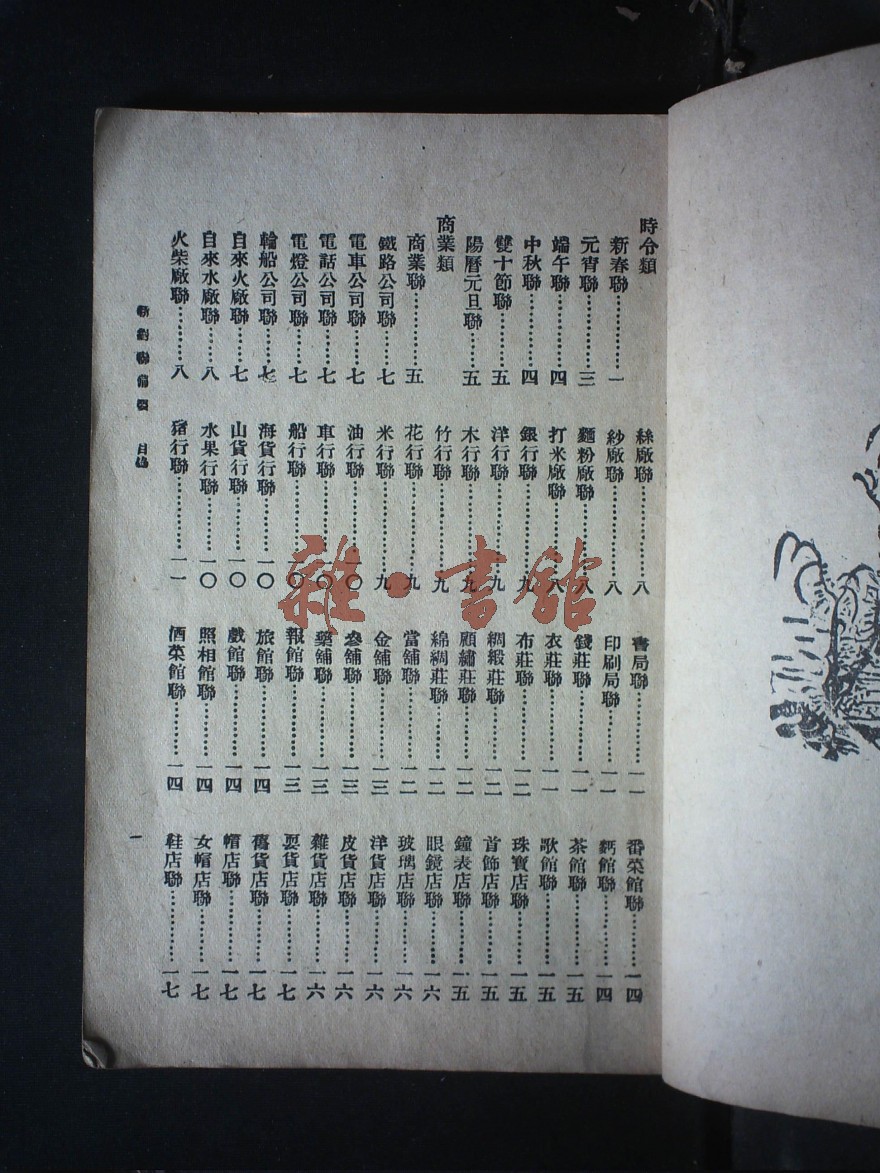 時令類
新春聯…………一
元宵聯…………三
端午聯…………四
中秋聯…………四
雙十節聯………五
陽曆元旦聯……五
商業類
商業聯…………五
鐵路公司聯……七
電車公司聯……七
電話公司聯……七
電燈公司聯……七
輪船公司聯……七
自來火廠聯……七
自來水廠聯……八
火柴廠聯………八
絲廠聯…………八
紗廠聯…………八
麵粉廠聯………八
打米廠聯………八
銀行聯…………九
洋行聯…………九
木行聯…………九
竹行聯…………九
花行聯…………九
米行聯…………九
油行聯…………一〇
車行聯…………一〇
船行聯…………一〇
海貨行聯………一〇
山貨行聯………一〇
水果行聯………一〇
豬行聯…………一一
書局聯…………一一
印刷局聯………一一
錢莊聯…………一一
衣莊聯…………一一
布莊聯…………一二
綢緞莊聯………一二
顧繡莊聯………一二
綿綢莊聯………一二
當舖聯…………一二
金舖聯…………一三
參舖聯…………一三
藥舖聯…………一三
報館聯…………一三
旅館聯…………一四
戲館聯…………一四
照相館聯………一四
酒菜館聯………一四
番菜館聯………一四
麪館聯…………一四
茶館聯…………一五
歌館聯…………一五
珠寶店聯………一五
首飾店聯………一五
鐘表店聯………一五
眼鏡店聯………一六
玻璃店聯………一六
洋貨店聯………一六
皮貨店聯………一六
雜貨店聯………一六
耍貨店聯………一七
舊貨店聯………一七
帽店聯…………一七
女帽店聯………一七
鞋店聯…………一七
目錄
一
雜·書館